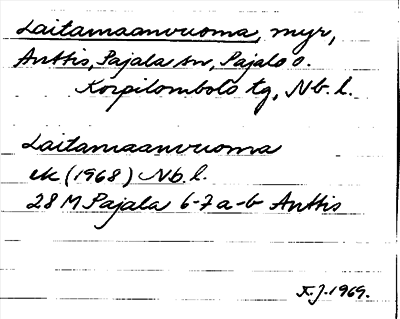 Laitamaanvuoma, myr,
Anttis, Pajala sn, Pajala o.
Korpilombolo tg, Nb. l.
Laitamaanvuoma
ek (1968) Nb. l.
28 M Pajala 6-7 a-b Anttis
K.J. 1969.